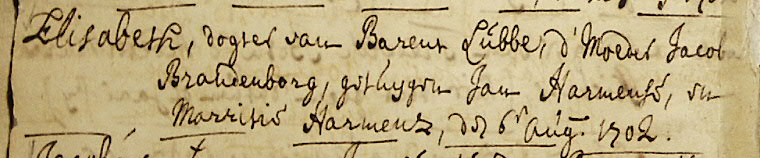 Elisabeth, dogter van Barent Lubbe, d'Moeder Jacob
Brandenborg, getuygen Jan Harmensé, en
Marritié Harmens, den 6ᵉ Aug. 1702.